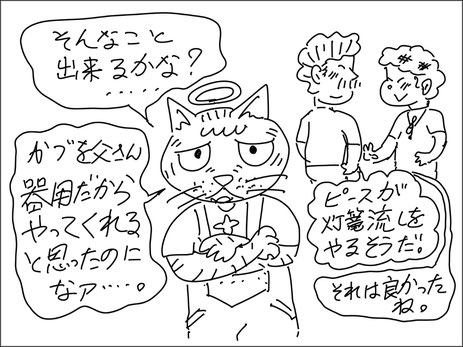 そんなこと
出来るかな?
……
かブを父さん
器用だから
やってくれる
と思ったのに
なァ……。
ピースが
灯篭流しを
やるそうだ。
それは良かった
ね。